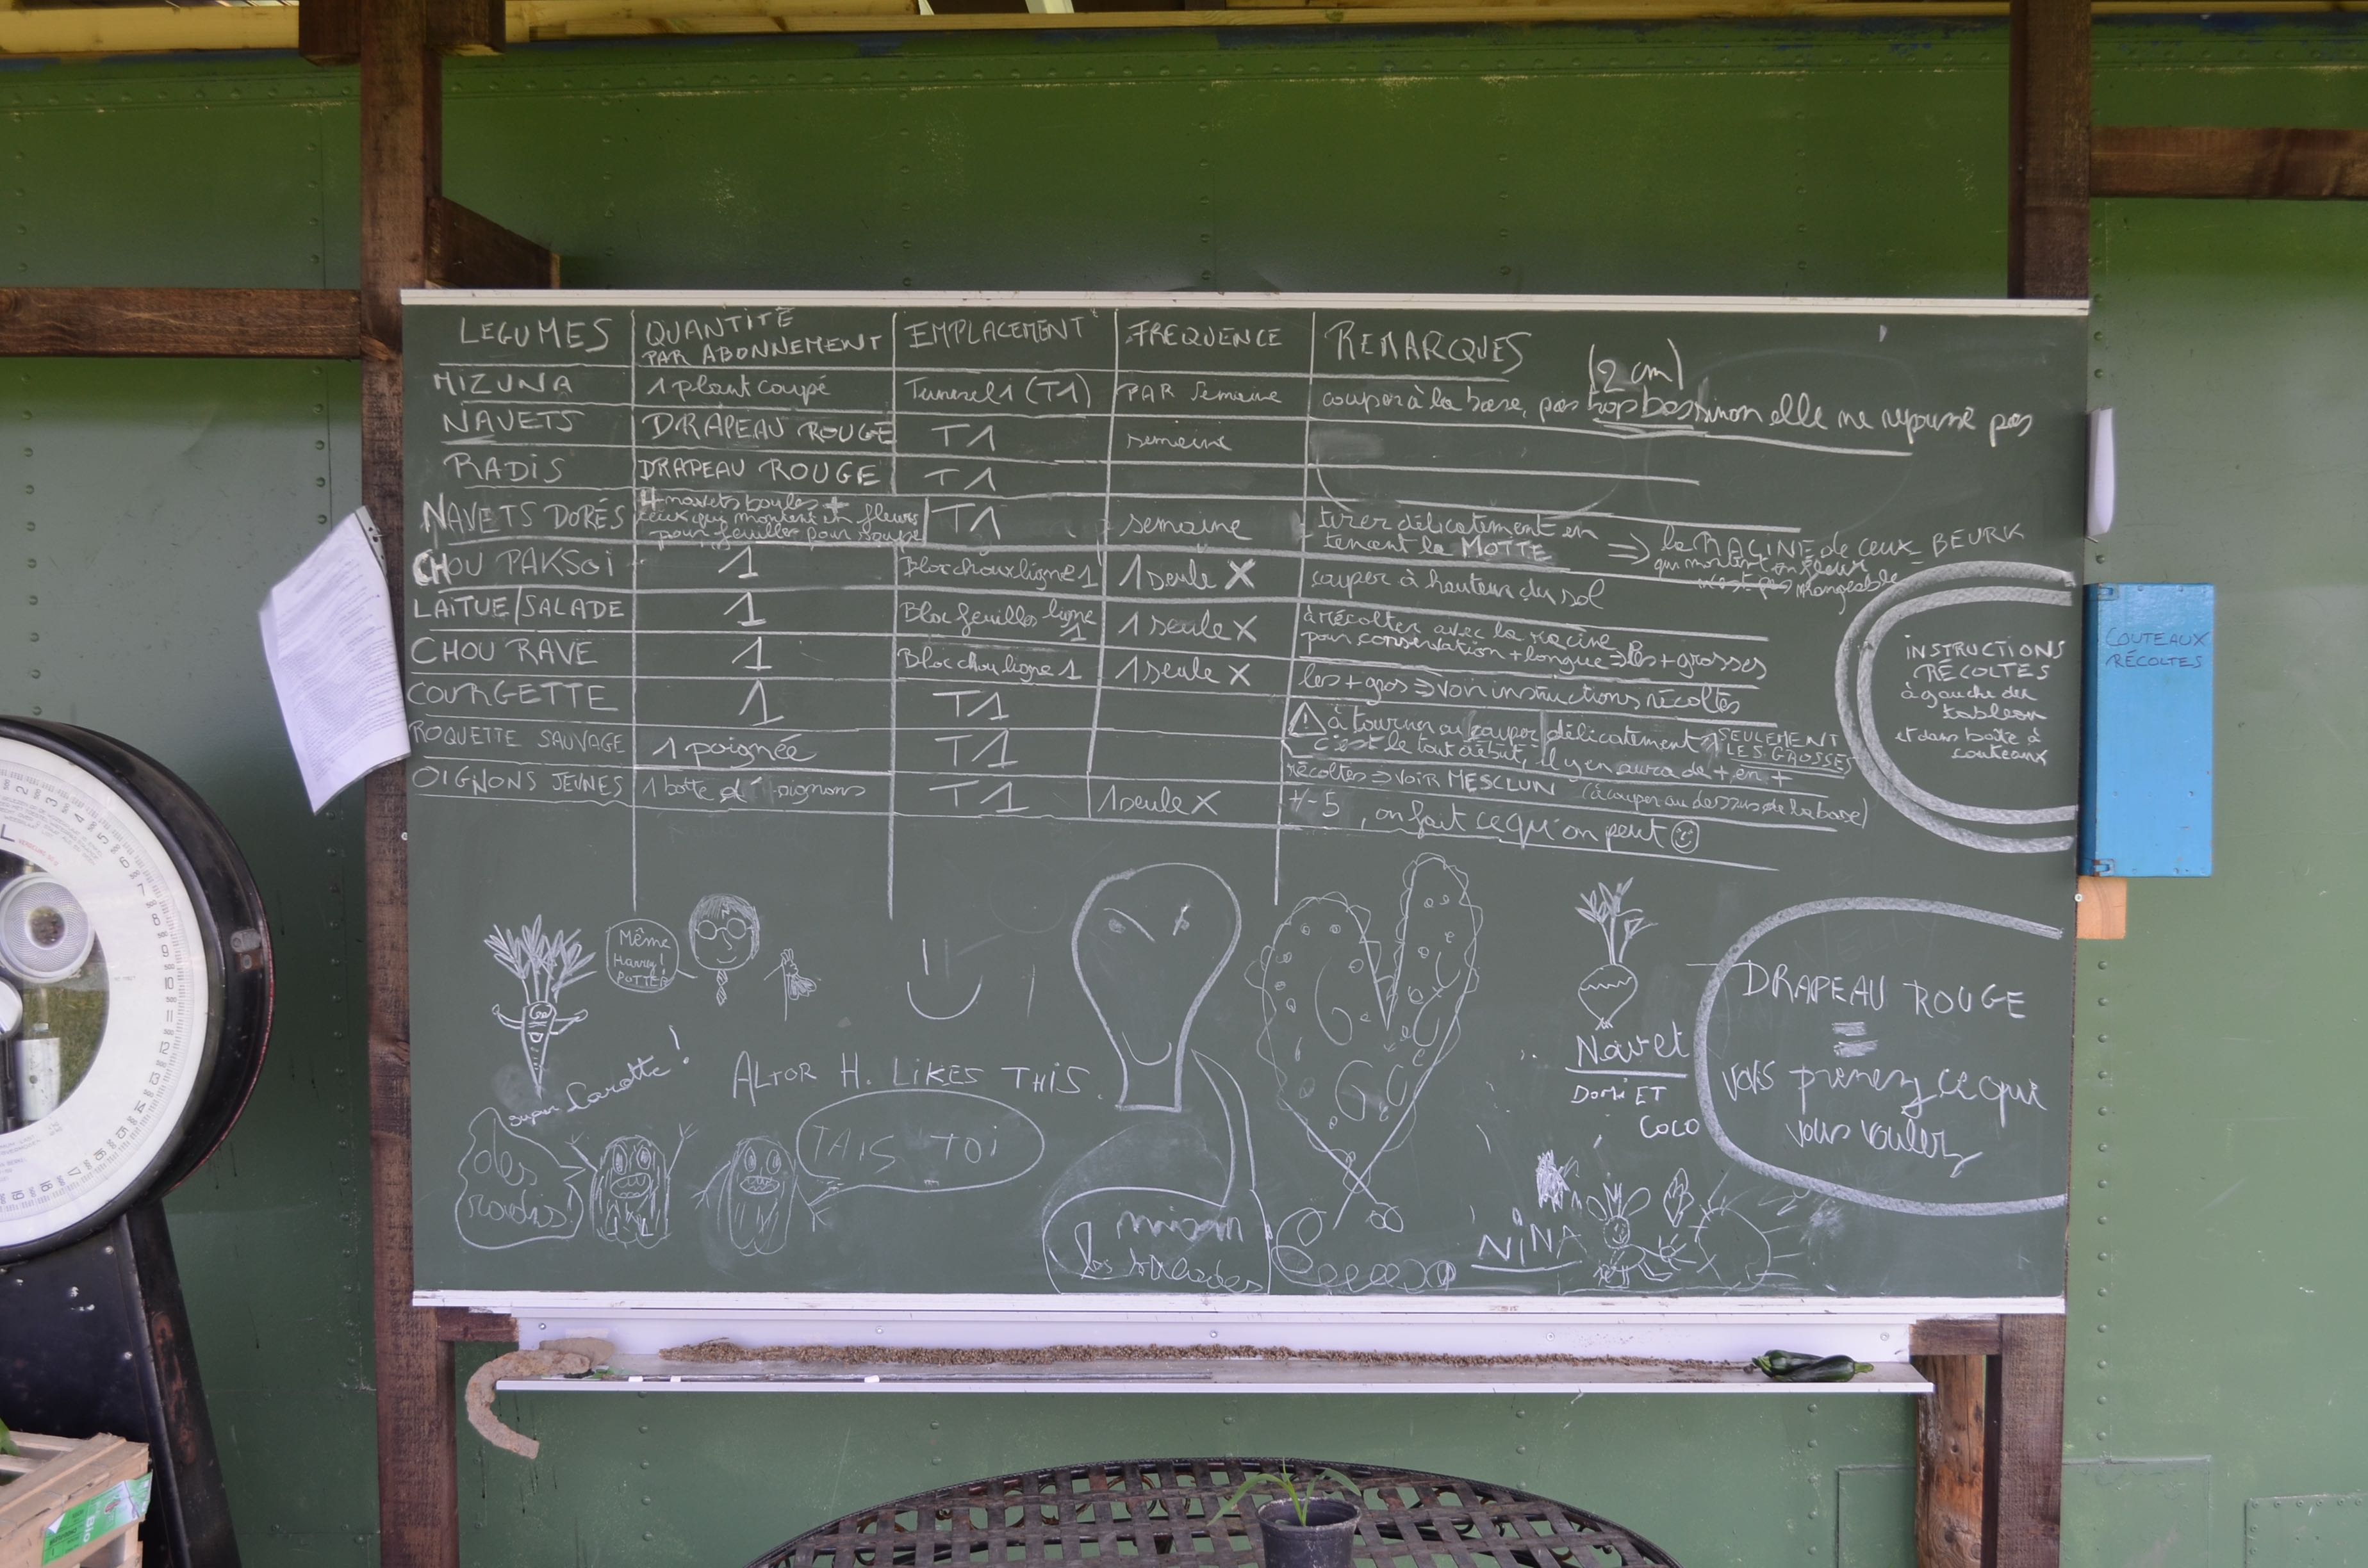 LEGUMES QUANTITÉ PAR ABONNEMENT EMPLACEMENT FREQUENCE REMARQUES
(2 cm)
MIZUNA 1 plant coupé Tunnel 1 (T1) PAR Semaine couper à la base, pas trop bas sinon elle ne repousse pas
NAVETS DRAPEAU ROUGE T1 semaine
RADIS DRAPEAU ROUGE T1
NAVETS DORÉS 4 navets boules + ceux qui montent en fleurs pour feuilles pour soupe T1 semaine tirer délicatement en tenant la MOTTE => la RACINE de ceux qui montent en fleur n'est pas mangeable BEURK
CHOU PAKSOI 1 Bloc choux ligne 1 1 seule X couper à hauteur du sol
LAITUE/SALADE 1 Bloc feuilles ligne 1 1 seule X à récolter avec la racine pour conservation + longue => les + grosses
CHOU RAVE 1 Bloc chou ligne 1 1 seule X les + gros => voir instructions récoltes
COURGETTE 1 T1 à tourner ou couper délicatement SEULEMENT LES GROSSES c'est le tout début, il y en aura de + en +
ROQUETTE SAUVAGE 1 poignée T1 récoltes => VOIR MESCLUN (à couper au dessus de la base)
OIGNONS JEUNES 1 botte d' oignons T1 1 seule X +/- 5, on fait ce qu'on peut
INSTRUCTIONS
RÉCOLTES
à gauche du
tableau
et dans boîte à
couteaux
COUTEAUX
RÉCOLTES
Même
Harry!
POTTER
super Carotte!
ALTOR H. LIKES THIS.
Navet
DOMI ET
COCO
DRAPEAU ROUGE
=
vous prenez ce qui
vous voulez
des
radis!
TAIS TOI
miam
les salades
NINA
Bio